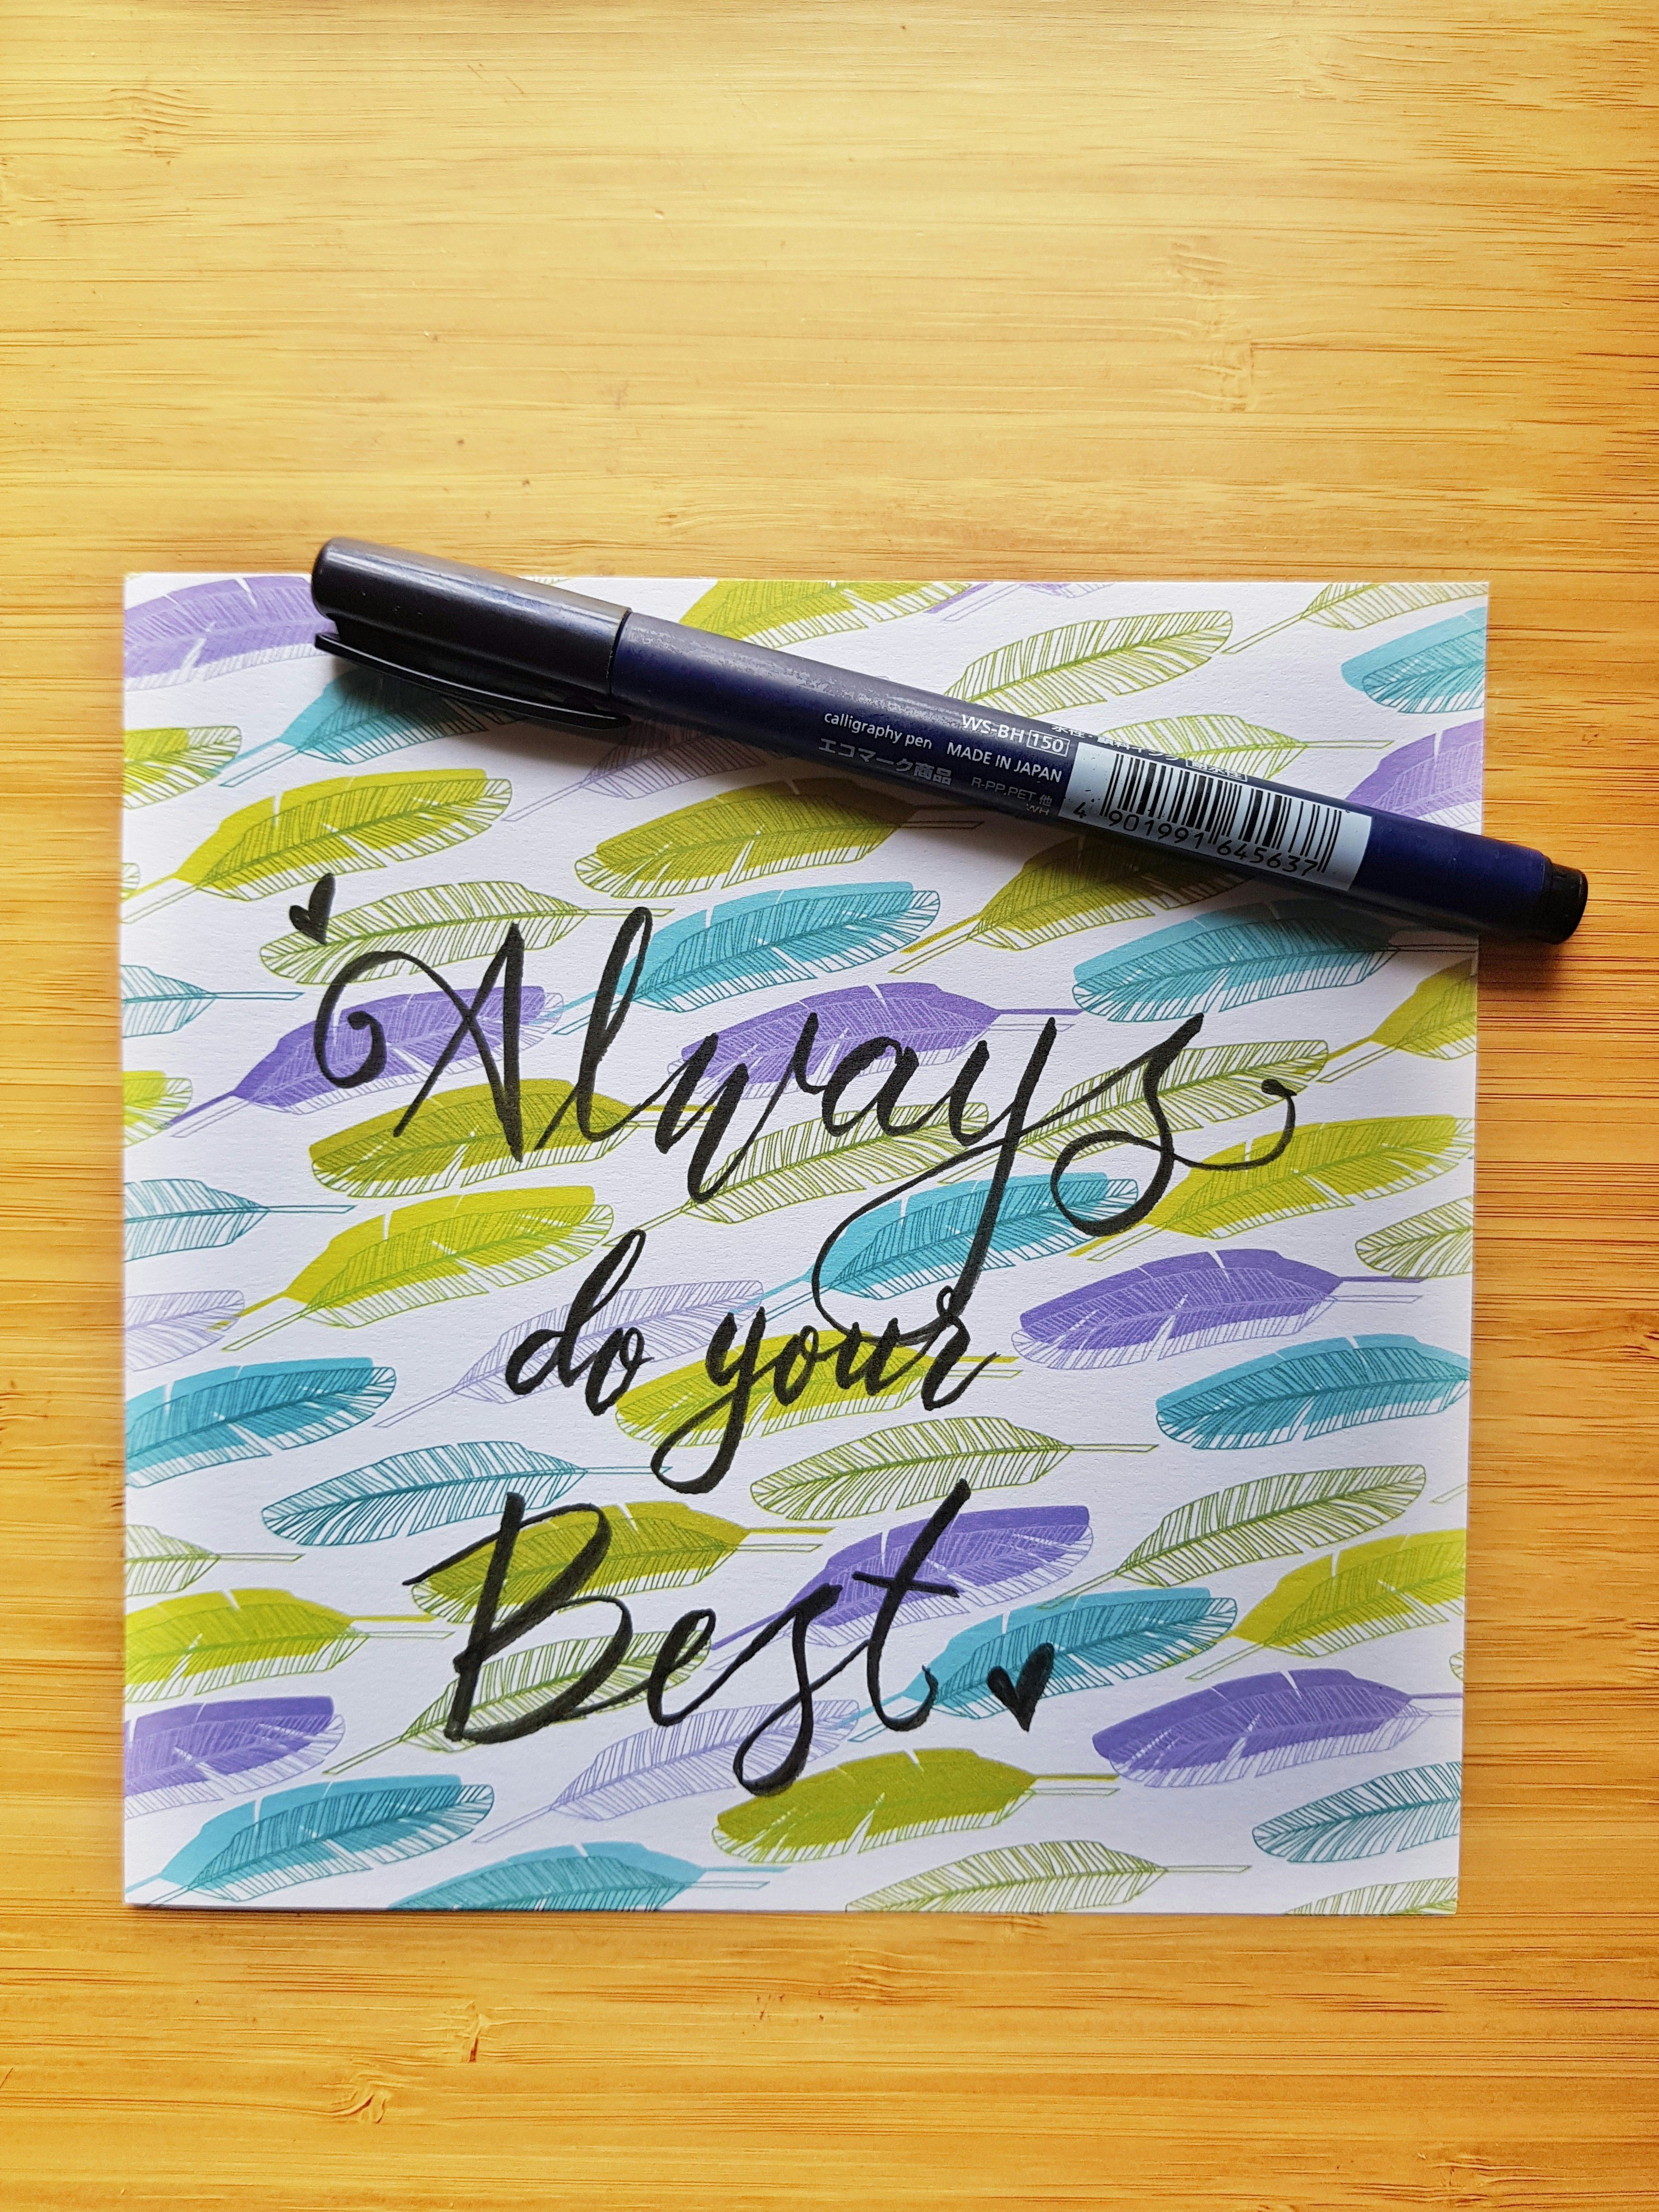 WS-BH 150
calligraphy pen MADE IN JAPAN
エコマーク商品 R-PP.PET 他
WH
4 901991 645637
Always
do your
Best